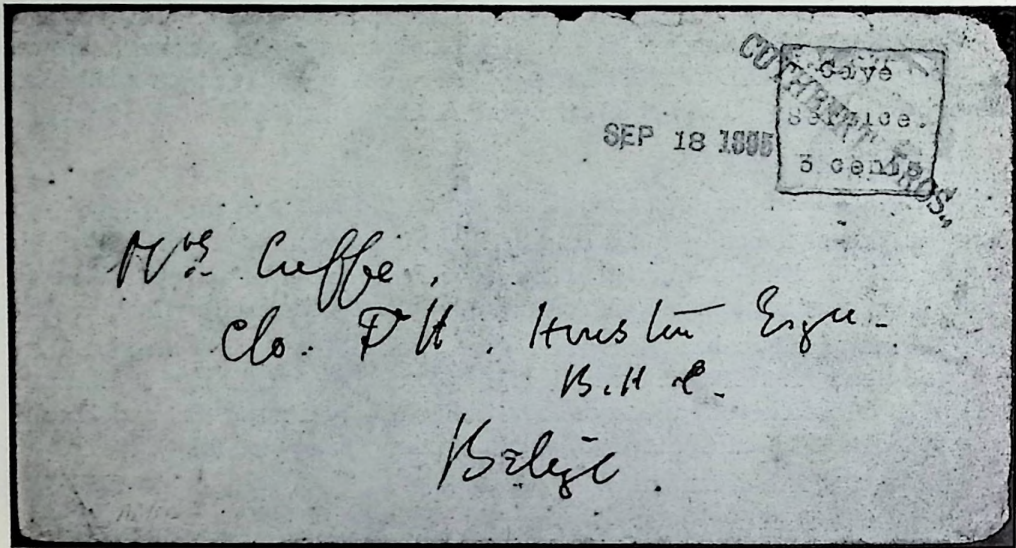 CUTHBERT BROS.,
Caye
Service.
3 cents
SEP 18 1895
Mrs. Cuffe,
c/o. P H. Huston Esqre.
B. H. C.
Belize.